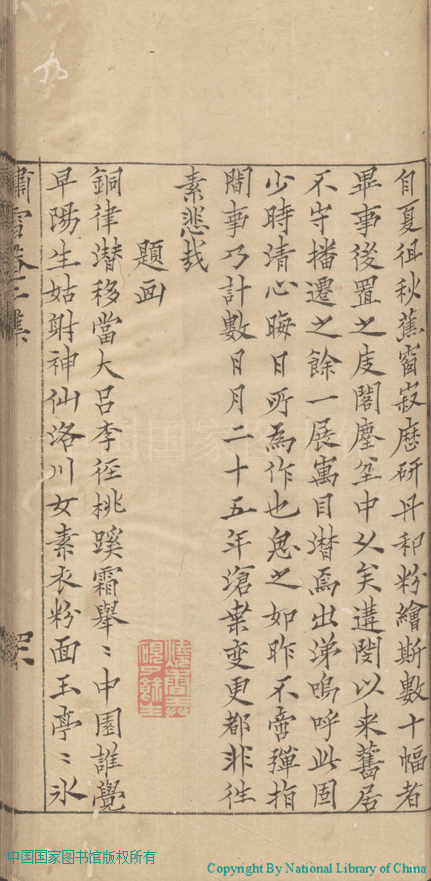 自夏徂秋蕉窗寂厯研丹和粉繪斯數十幅者
畢事後置之庋閣塵坌中久矣遘閔以来舊居
不守播遷之餘一展寓目潸焉出涕嗚呼此固
少時清心晦日所為作也思之如昨不啻彈指
間事乃計數日月二十五年滄桒变更都非徃
素悲哉
題画
銅律潜移當大吕李徑桃蹊霜舉〻中園誰覺
早陽生姑射神仙洛川女素衣粉面玉亭〻氷
嘯雪菴二集
中国国家图书馆版权所有
Copyright By National Library of China